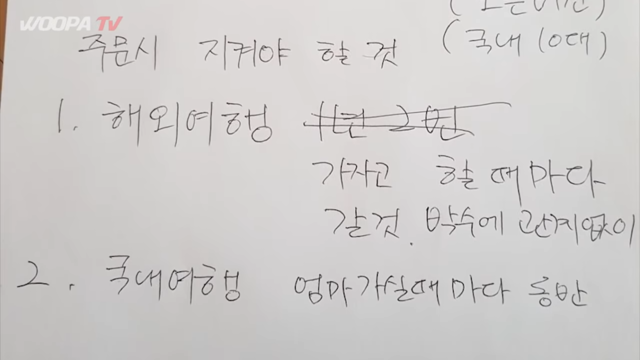 WOOPA TV
(오른버만)
(국내 10대)
주문시 지켜야 할 것
1. 해외여행 1년 2번
가자고 할 때마다
갈것. 박수에 관계없이
2. 국내여행 엄마가실때마다 동반